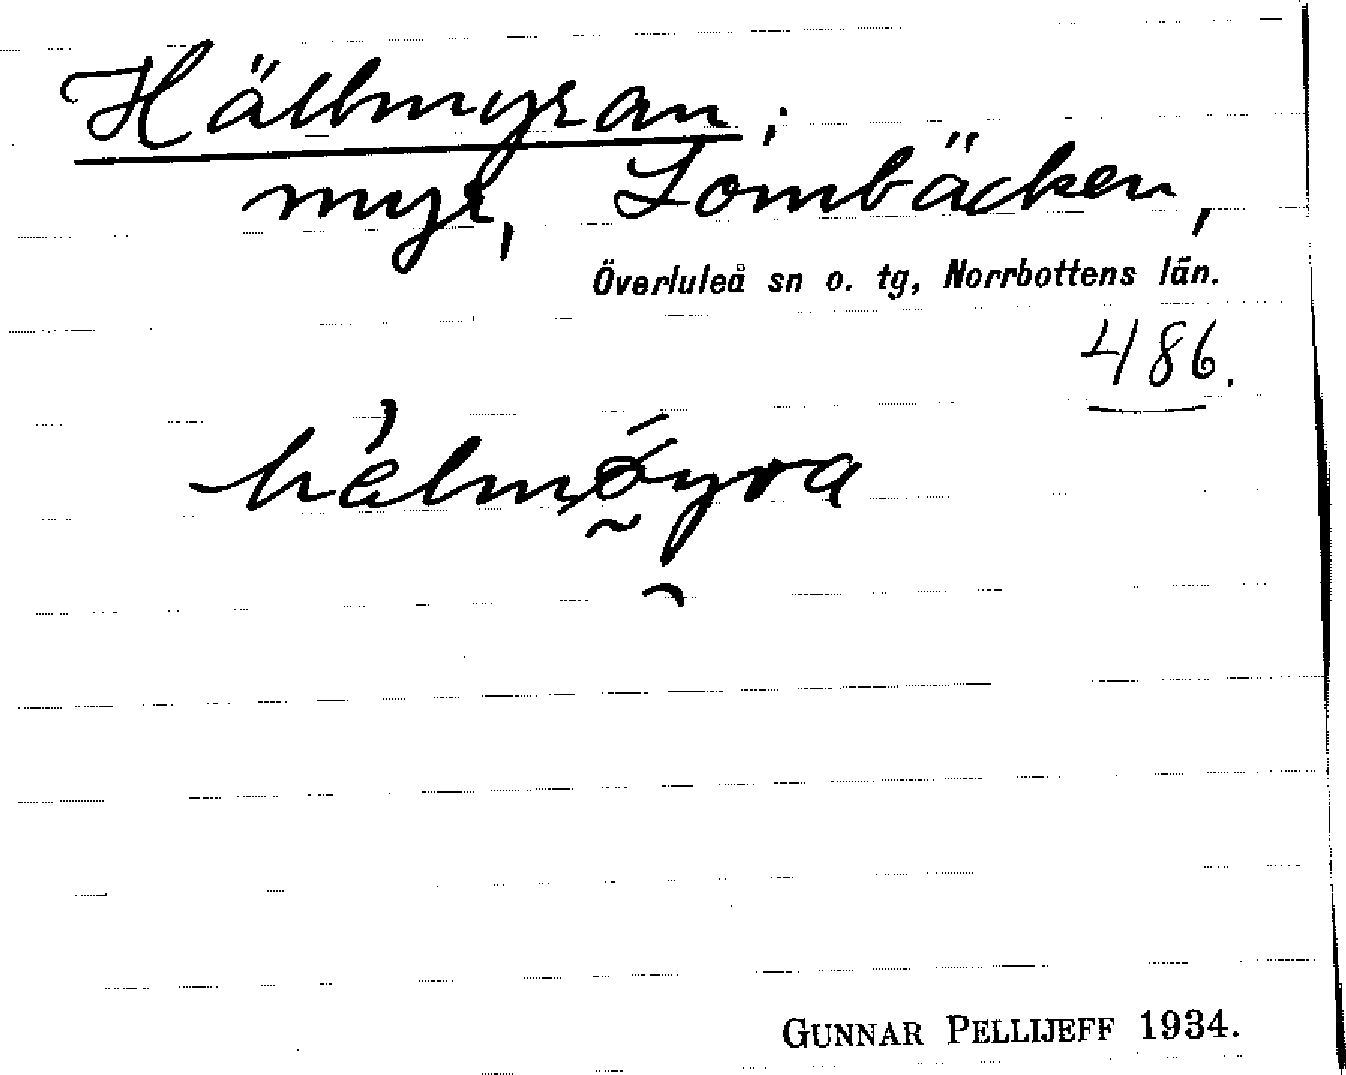 Hällmyran;
myr, Lombäcken,
Överluleå sn o. tg, Norrbottens län.
486.
GUNNAR PELLIJEFF 1934.